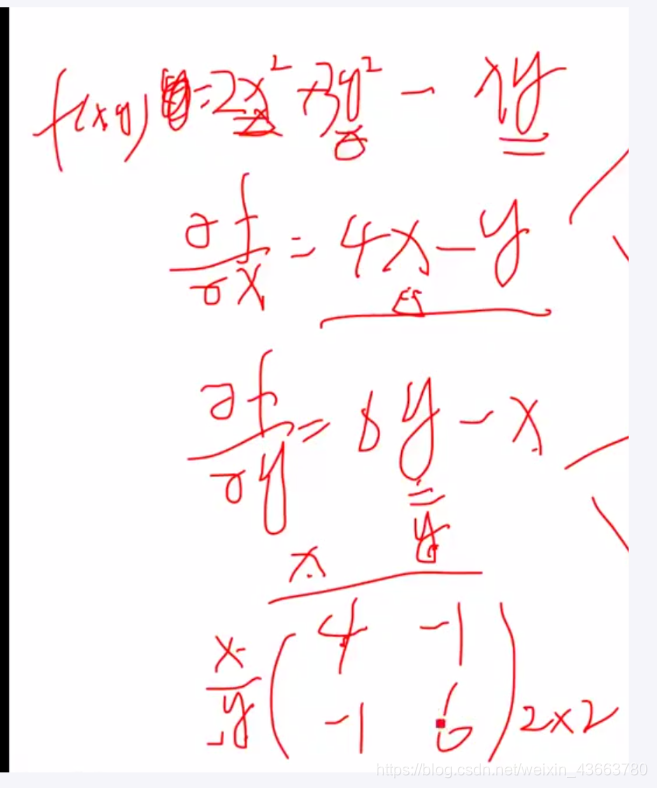 f(x,y) = 2x² + 3y² - xy
∂f/∂x = 4x - y
∂f/∂y = 6y - x
x y
x ( 4 -1 )
y ( -1 6 ) 2×2
https://blog.csdn.net/weixin_43663780